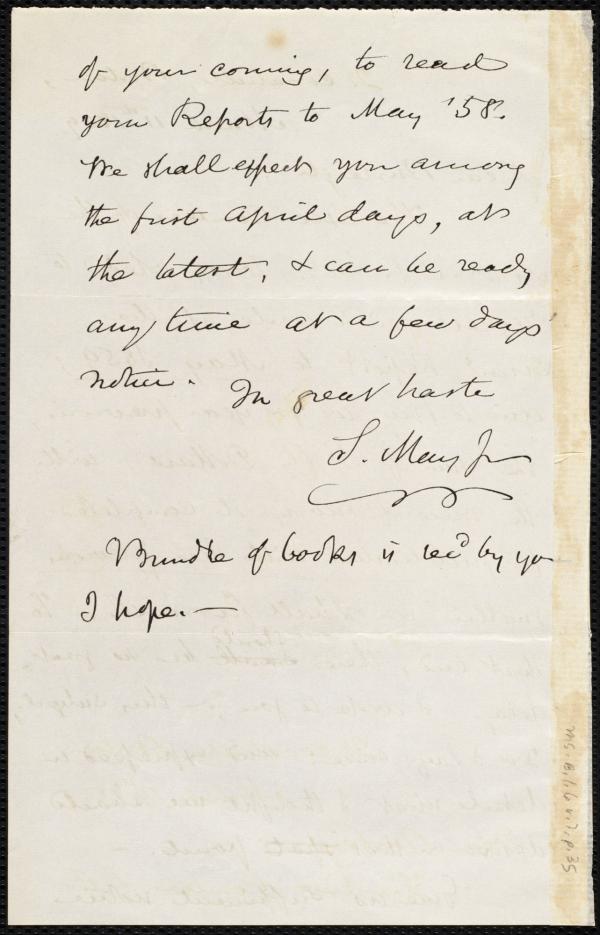 of your coming, to read
your Reports to May '58.
We shall expect you among
the first April days, at
the latest; & can be ready
any time at a few days'
notice. In great haste
S. May Jr
Bundle of books is rec'd by you
I hope.—
Ms. B.1.6 v.7, p.35